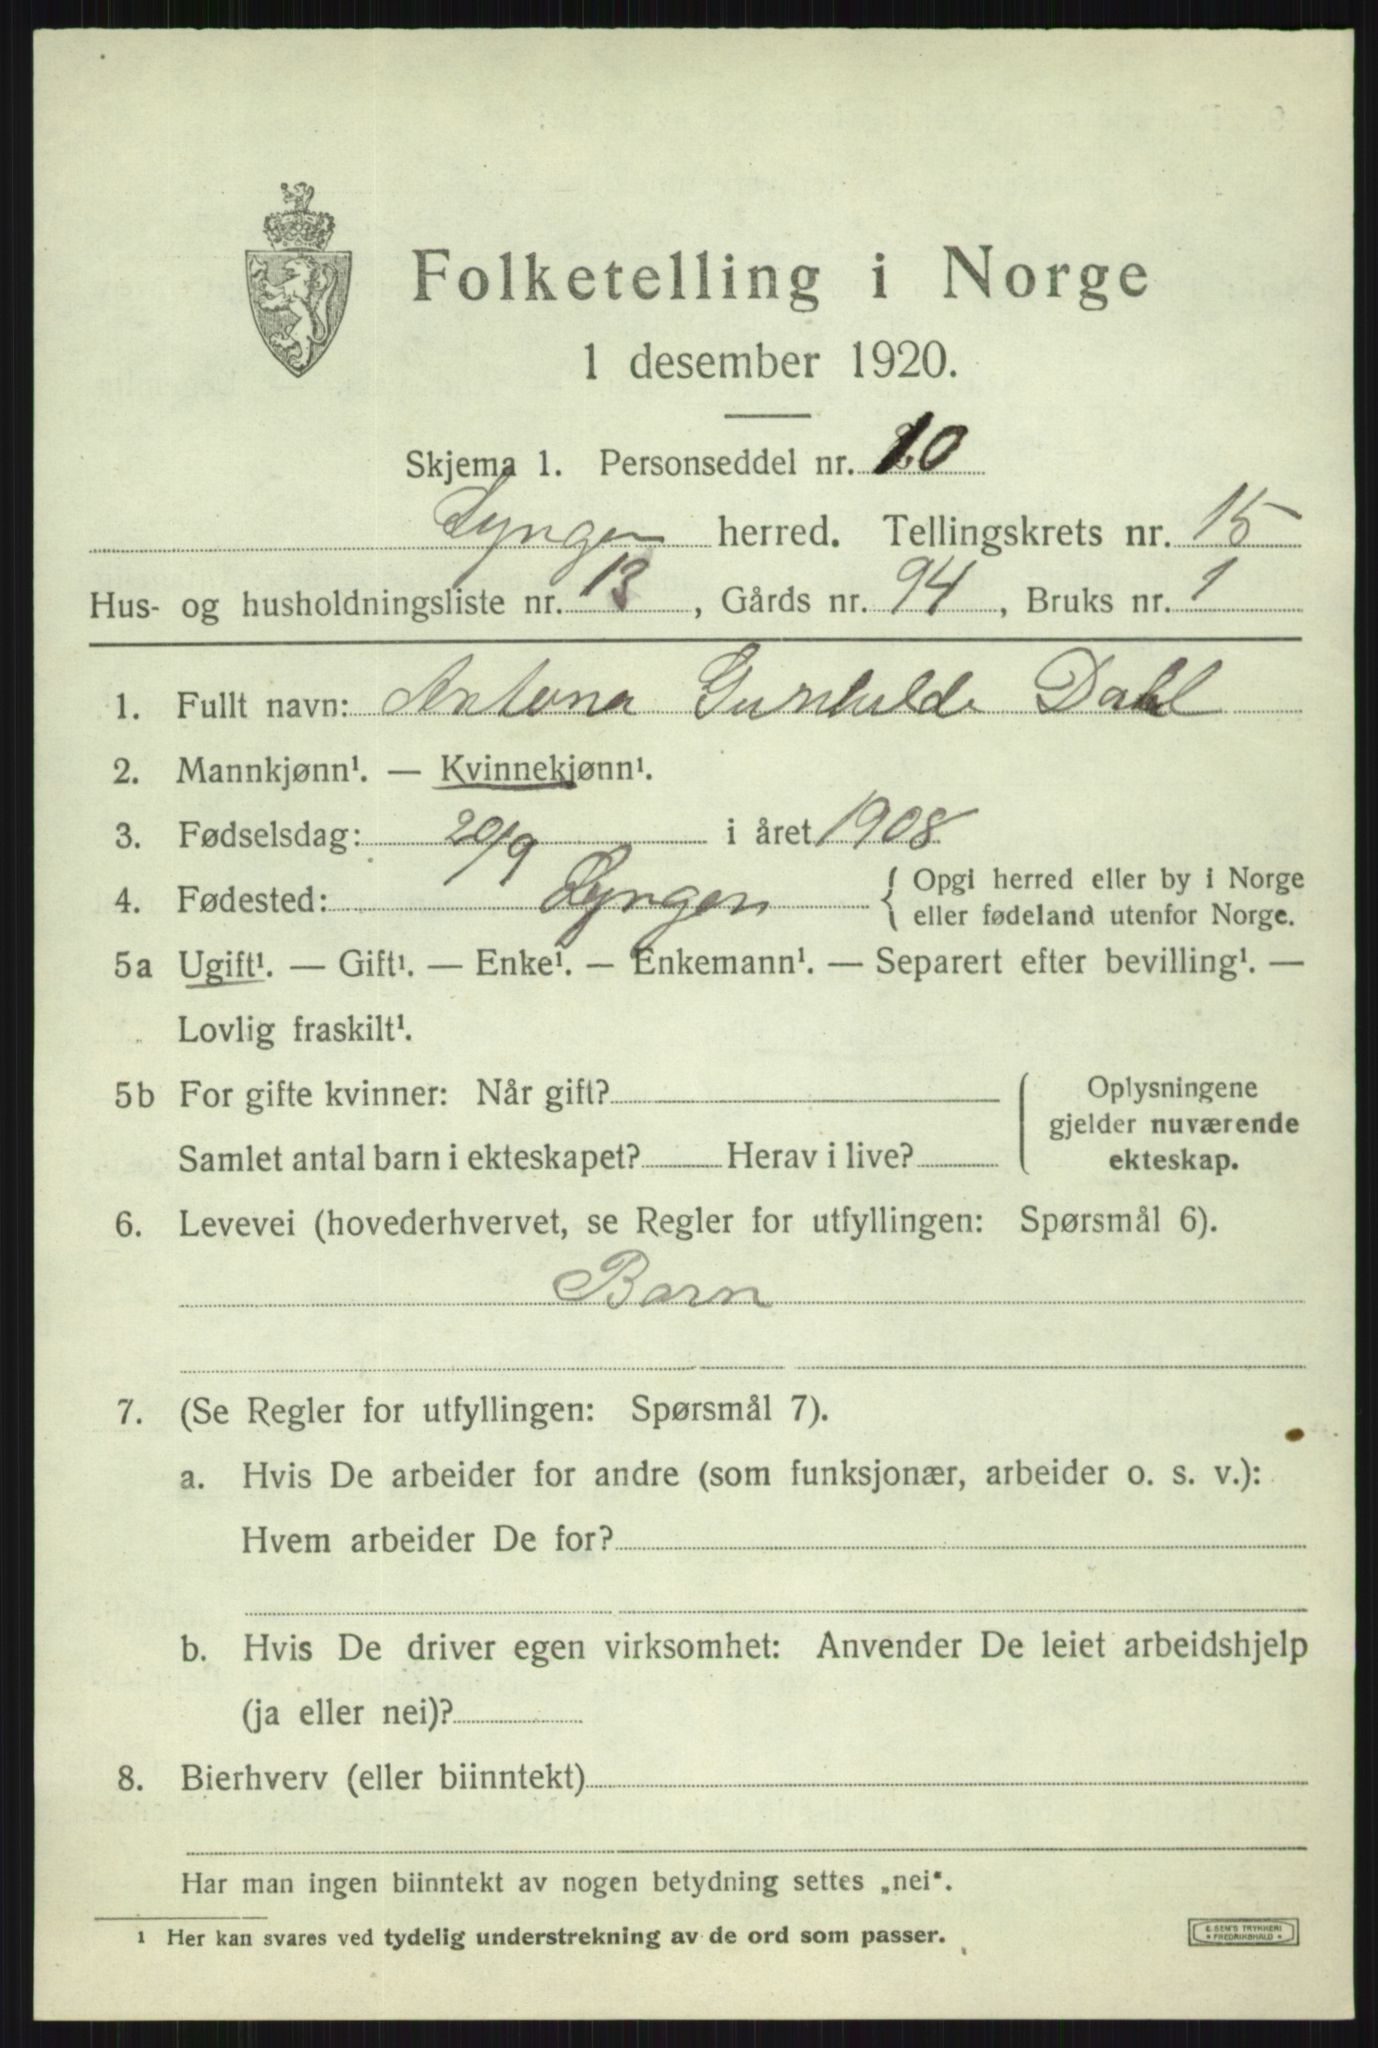 Folketelling i Norge
1 desember 1920.
Skjema 1. Personseddel nr. 10
Lyngen herred. Tellingskrets nr. 15
Hus- og husholdningsliste nr. 13, Gårds nr. 94, Bruks nr. 1
1. Fullt navn: Antona Gunhilde Dahl
2. Mannkjønn¹. — Kvinnekjønn¹.
3. Fødselsdag: 20/9 i året 1908
4. Fødested: Lyngen { Opgi herred eller by i Norge
eller fødeland utenfor Norge.
5a Ugift¹. — Gift¹. — Enke¹. — Enkemann¹. — Separert efter bevilling¹. —
Lovlig fraskilt¹.
5b For gifte kvinner: Når gift?
Samlet antal barn i ekteskapet? Herav i live?
Oplysningene
gjelder nuværende
ekteskap.
6. Levevei (hovederhvervet, se Regler for utfyllingen: Spørsmål 6).
Barn
7. (Se Regler for utfyllingen: Spørsmål 7).
a. Hvis De arbeider for andre (som funksjonær, arbeider o. s. v.):
Hvem arbeider De for?
b. Hvis De driver egen virksomhet: Anvender De leiet arbeidshjelp
(ja eller nei)?
8. Bierhverv (eller biinntekt)
Har man ingen biinntekt av nogen betydning settes „nei“.
¹ Her kan svares ved tydelig understrekning av de ord som passer.
E. SEM'S TRYKKERI
* FREDRIKSHALD *